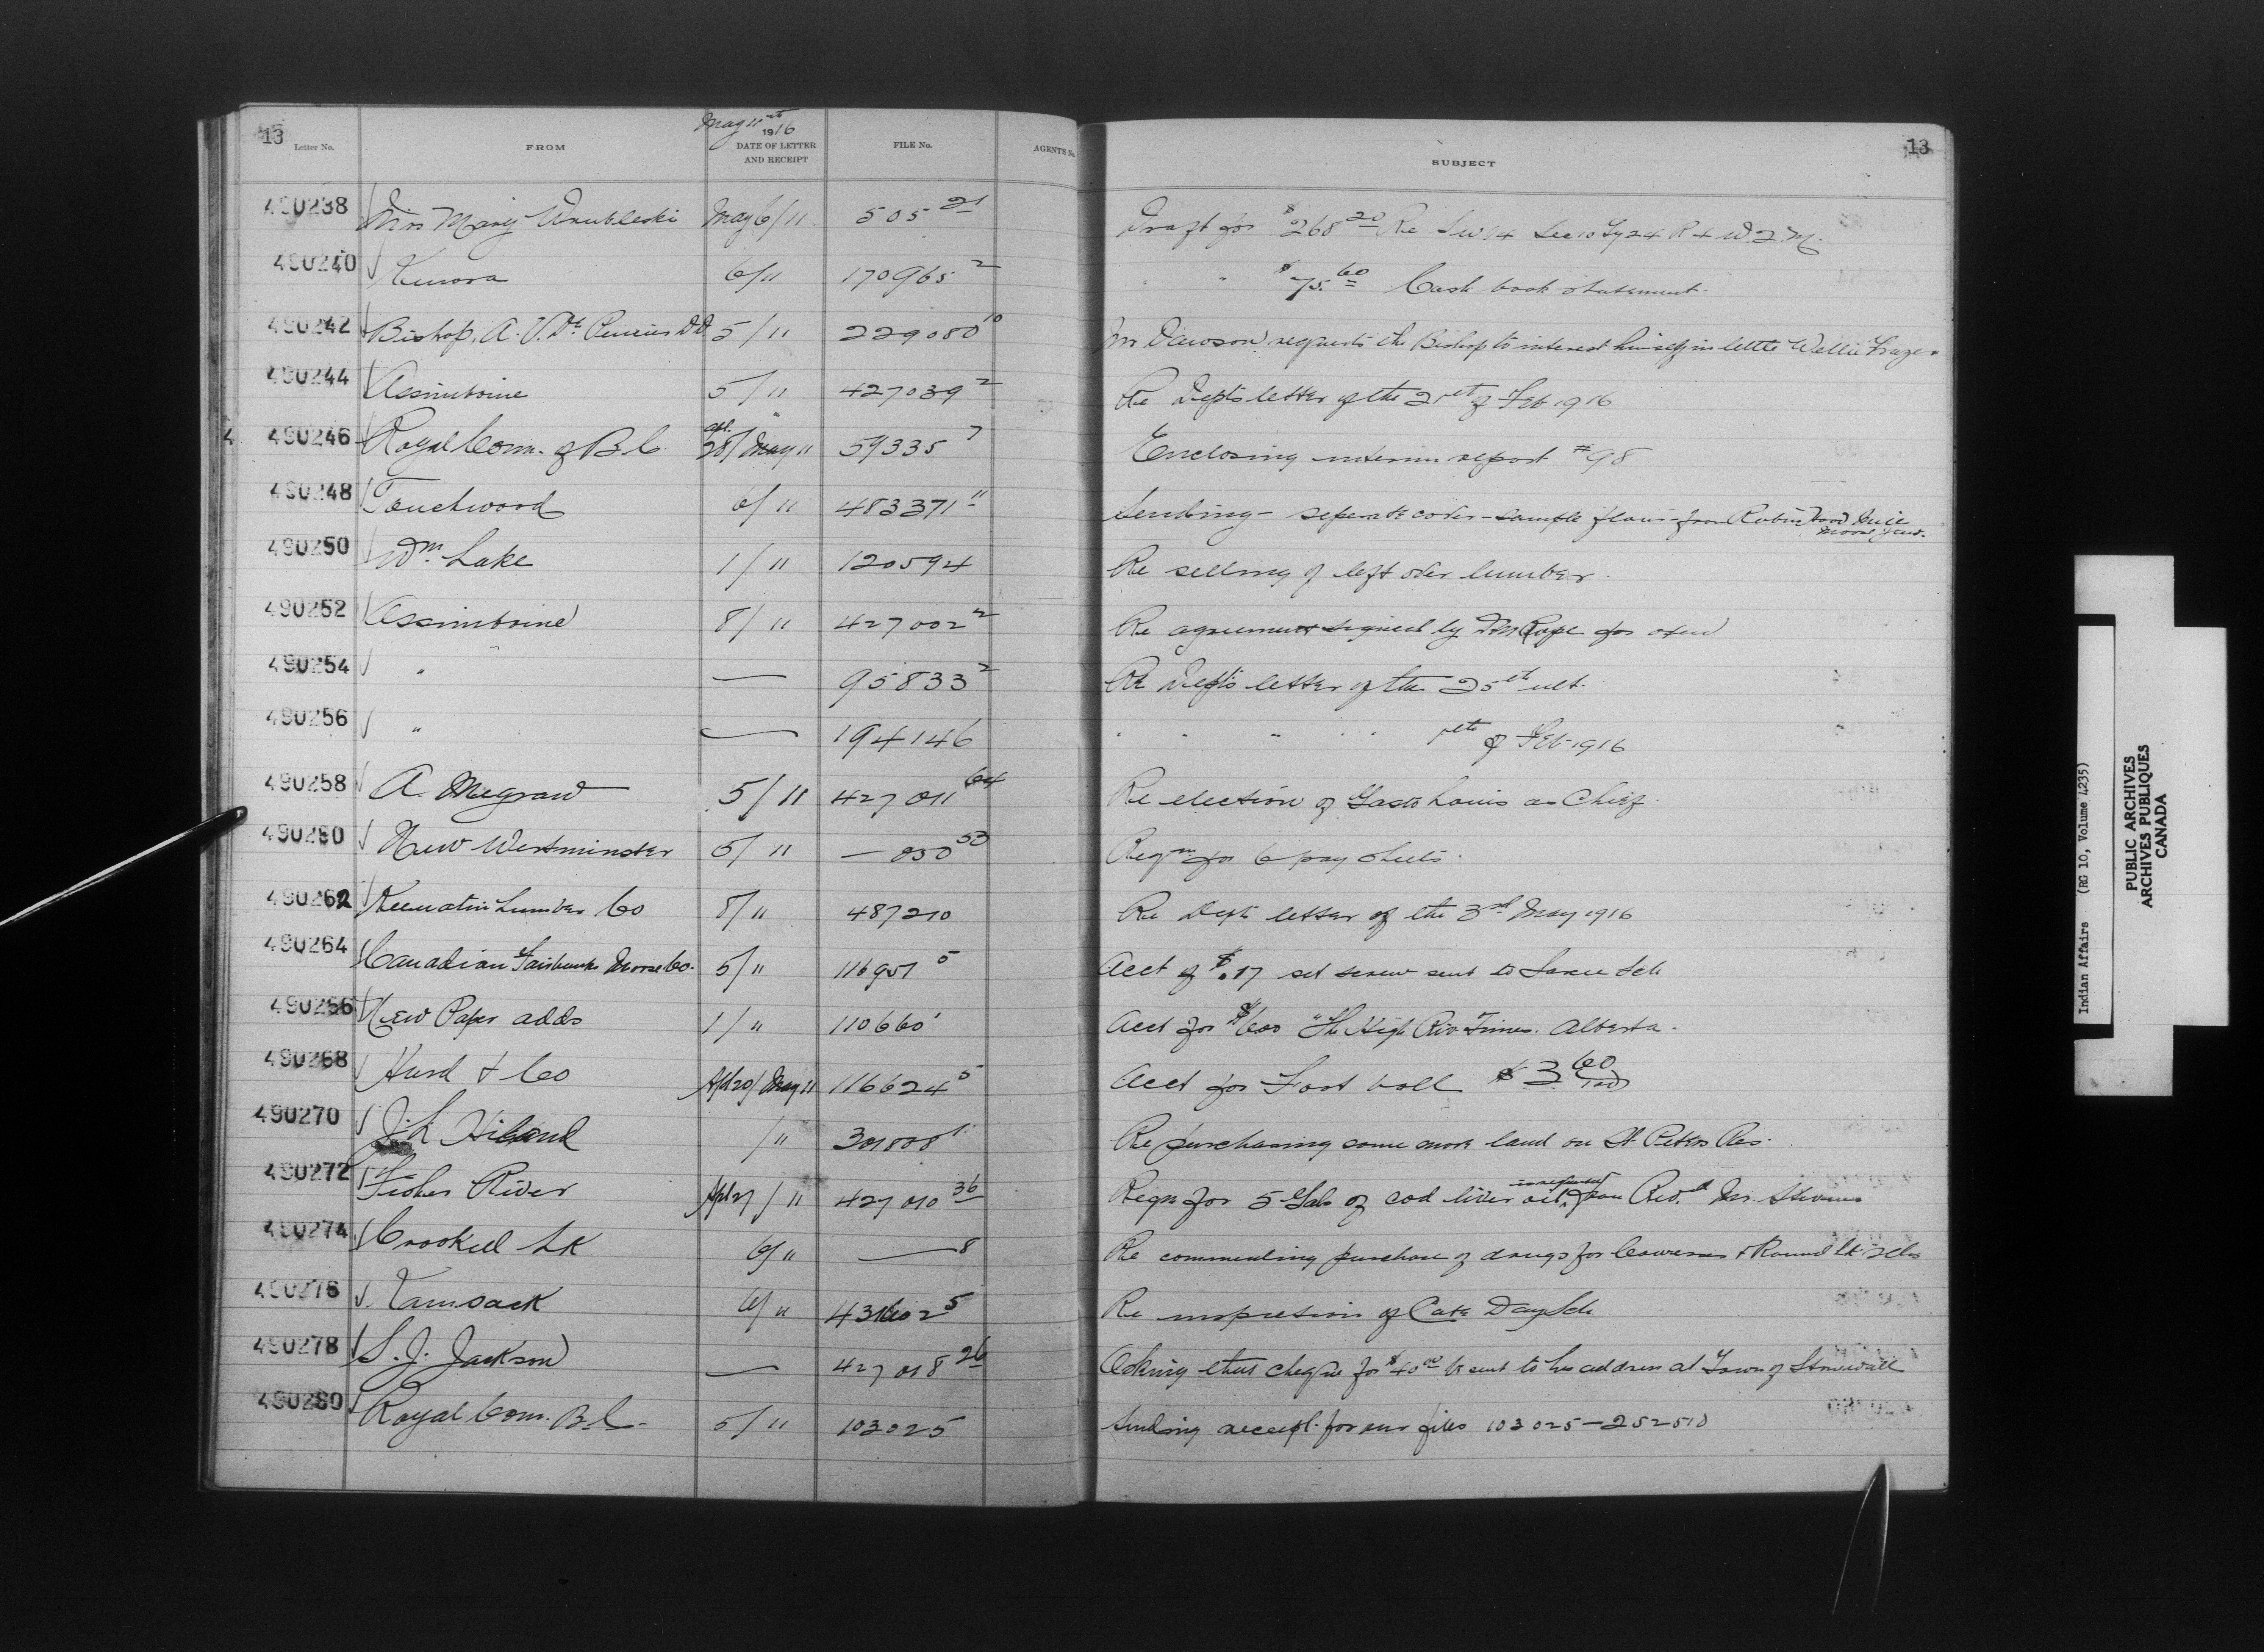 May 11th
13 Letter No. FROM 1916 DATE OF LETTER AND RECEIPT FILE No. AGENT'S No. SUBJECT 13
490238 Mrs Mary Wrubleski May 6/11 505 21 Draft for $268 20 Re S W 1/4 Sec 10 Tp 24 R 4 W 2 M.
490240 Kenora 6/11 170965 2 " " $75.60 Cash book statement.
490242 Bishop. A. U. De Pencier D.D. 5/11 229080 10 Mr Dawson requests the Bishop to interest himself in little Wellie Frazer
490244 Assiniboine 5/11 427039 2 Re Dept's letter of the 21st of Feb 1916
4 490246 Royal Comm. of B.C. Apl. 28/May 11 59335 7 Enclosing interim report #98
490248 Touchwood 6/11 483371 11 Sending - seperate cover - sample flour - from Robin Hood Mill Moose Jaw.
490250 Wm Lake 1/11 120594 Re selling of left over lumber.
490252 Assiniboine 8/11 427002 2 Re agreement signed by for oxen
490254 " — 95833 2 Re Dept's letter of the 25th ult.
490256 " — 194146 " " " " " of Feb 1916
490258 A. Megraw 5/11 427011 64 Re election of Louis as Chief.
490260 New Westminster 5/11 — 030 53 Reqn for 6 pay sheets.
490262 Keewatin Lumber Co 8/11 487210 Re Dept letter of the 3rd May 1916
490264 Canadian Fairbanks Morse Co. 5/11 116957 5 Acct of $.17 set screw sent to Sarcee Sch
490266 New Paper adds 1/11 110660 1 Acct for $6.00 "The High Riv Times. Alberta.
490268 Hurd & Co Apl 20/May 11 116624 5 Acct for Foot ball $3 60/100
490270 J. L. /11 301808 1 Re purchasing some more land on St Peters Res.
490272 Fisher River Apl 27/11 427010 36 Reqn for 5 Gals of cod liver oil, as requested from Rev.d Mr. Stevens
490274 Crooked LK 6/11 — 8 Re purchase of drugs for Cowesses & Round Lk Schs
490276 Kamsack 6/11 431602 5 Re inspection of Cote Day Sch
490278 S. J. Jackson — 427018 26 Asking that cheque for $40 00 be sent to his address at Town of Stonewall
490280 Royal Com. B.C. 5/11 103025 Sending receipt for our files 103025 - 252510
Indian Affairs (RG 10, Volume 4235)
PUBLIC ARCHIVES
ARCHIVES PUBLIQUES
CANADA